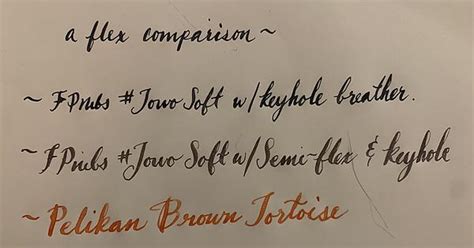 a flex comparison ~
~ FPnibs #Jowo Soft w/keyhole breather.
~ FPnibs #Jowo Soft w/Semi-flex & keyhole
~ Pelikan Brown Tortoise